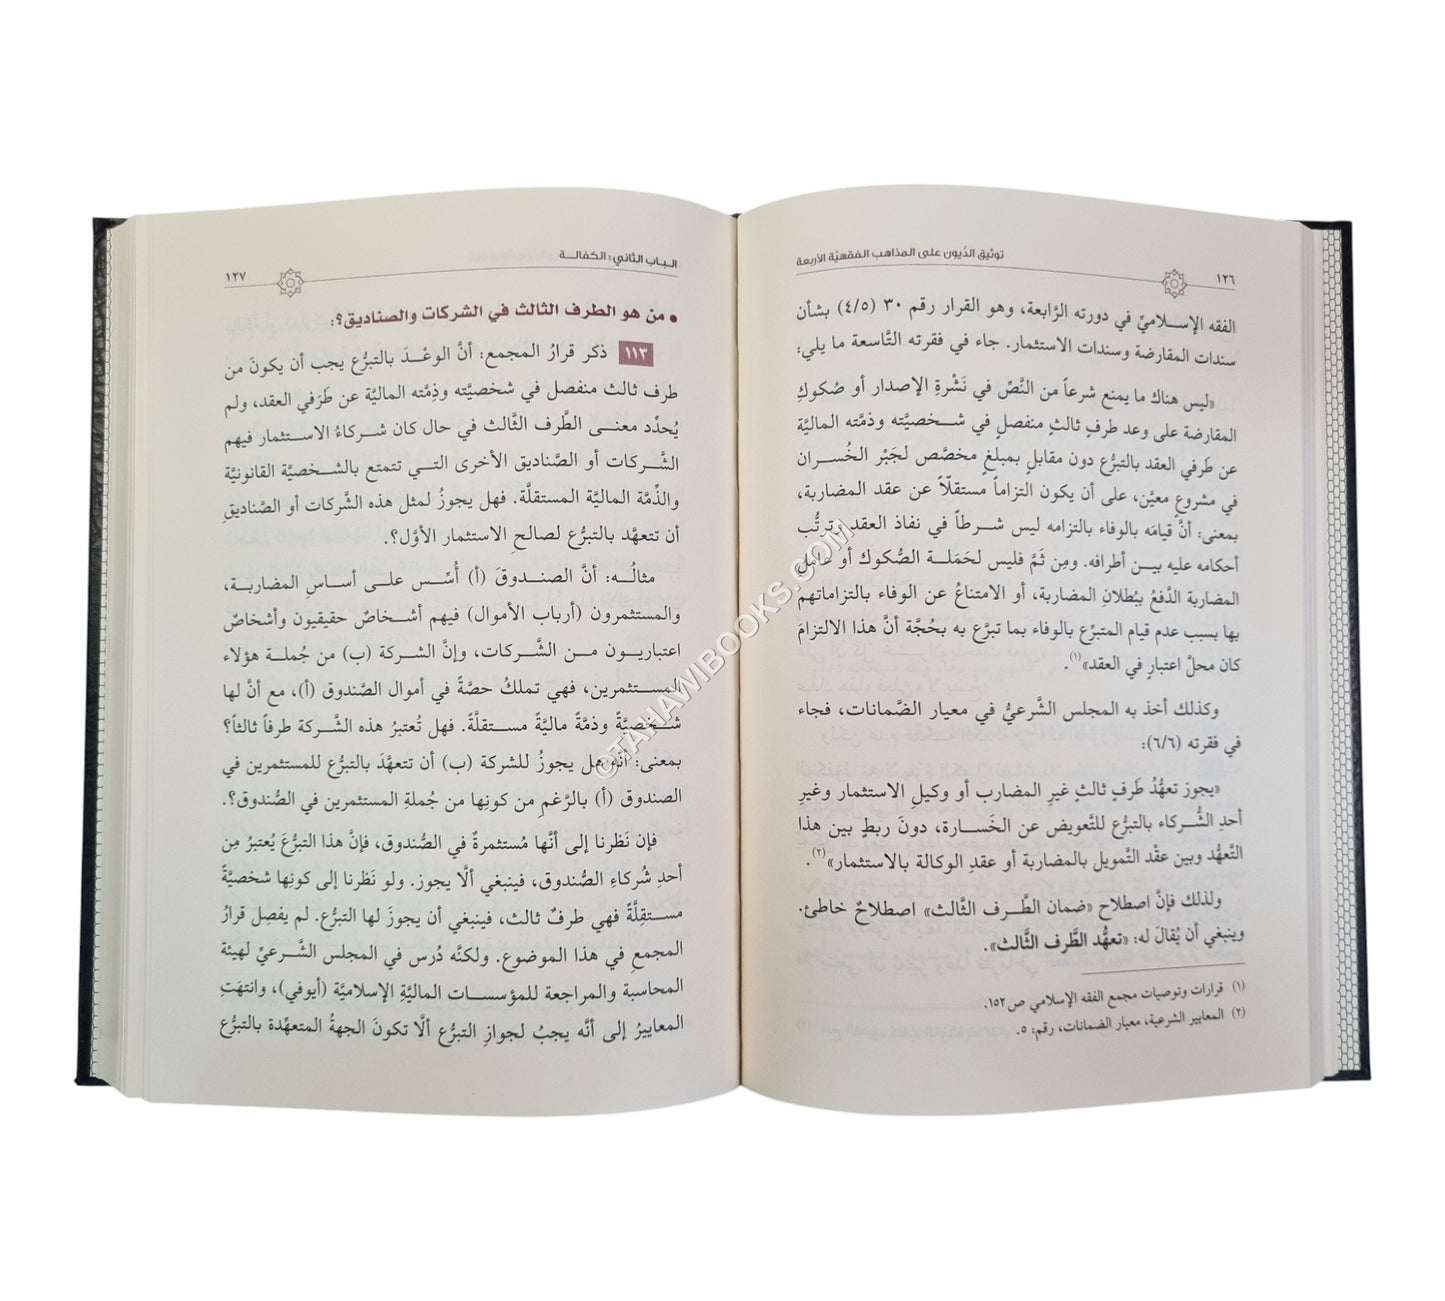 توثيق الدُيون على المذاهب الفقهيَّة الأربعة
١٢٦
الفقه الإســلاميِّ في دورته الرَّابعة، وهو القرار رقم ٣٠ (٤/٥) بشأن
سندات المقارضة وسندات الاستثمار. جاء في فقرته التَّاسعة ما يلي:
«ليس هناك ما يمنع شرعاً من النَّصِّ في نَشْرةِ الإصدار أو صُكوكِ
المقارضة على وعد طرفٍ ثالثٍ منفصلٍ في شخصيَّته وذمَّته الماليَّة
عن طَرفي العقد بالتبرُّع دون مقابلٍ بمبلغٍ مخصَّص لجَبْر الخُسران
في مشروعٍ معيَّن، على أن يكون التزاماً مستقلّاً عن عقد المضاربة،
بمعنى: أنَّ قيامَه بالوفاء بالتزامه ليس شرطاً في نفاذ العقد وترتُّب
أحكامه عليه بيــن أطرافه. ومِن ثَمَّ فليس لحَمَلة الصُّكوك أو عامل
المضاربة الدَّفعُ ببُطلانِ المضاربة، أو الامتناعُ عن الوفاء بالتزاماتهم
بها بسبب عدم قيام المتبرِّع بالوفاء بما تبرَّع به بحُجَّة أنَّ هذا الالتزامَ
كان محلَّ اعتبارٍ في العقد»(١).
وكذلك أخذ به المجلس الشَّرعيُّ في معيار الضَّمانات، فجاء
في فقرته (٦/٦):
«يجوز تعهُّدُ طَرفٍ ثالثٍ غيرِ المضارب أو وكيلِ الاستثمار وغيرِ
أحدِ الشُّركاء بالتبرُّع للتَّعويض عن الخَسارة، دونَ ربطٍ بين هذا
التَّعهُّد وبين عقْد التَّمويل بالمضاربة أو عقدِ الوكالة بالاستثمار»(٢).
ولذلك فإنَّ اصطلاح «ضمان الطَّرف الثَّالث» اصطلاحٌ خاطئ.
وينبغي أن يُقالَ له: «تعهُّد الطَّرف الثَّالث».
(١) قرارات وتوصيات مجمع الفقه الإسلامي ص١٥٢.
(٢) المعايير الشرعية، معيار الضمانات، رقم: ٥.
الـباب الثاني: الكفالـة
١٢٧
• من هو الطرف الثالث في الشركات والصناديق؟:
١١٣ ذكر قرارُ المجمع: أنَّ الوعْدَ بالتبرُّع يجب أن يكونَ من
طرف ثالث منفصل في شخصيَّته وذِمَّته الماليَّة عن طَرَفي العقد، ولم
يُحدِّد معنى الطَّرف الثَّالث في حال كان شركاءُ الاستثمار فيهم
الشَّركات أو الصَّناديق الأخرى التي تتمتع بالشخصيَّة القانونيَّة
والذِّمَّة الماليَّة المستقلَّة. فهل يجوزُ لمثل هذه الشَّركات أو الصَّناديقِ
أن تتعهَّد بالتبرُّع لصالحِ الاستثمار الأوَّل؟.
مثالُـه: أنَّ الصندوقَ (أ) أُسِّس على أساسِ المضاربة،
والمستثمرون (أرباب الأموال) فيهم أشخاصٌ حقيقيون وأشخاصٌ
اعتباريون من الشَّركات، وإنَّ الشركة (ب) من جُملة هؤلاء
المستثمرين، فهي تملكُ حصَّةً في أموال الصَّندوق (أ)، مع أنَّ لها
شخصيَّةً وذمَّةً ماليَّةً مستقلَّةً. فهل تُعتبرُ هذه الشَّركة طرفاً ثالثاً؟
بمعنى: أنَّه هل يجوزُ للشركة (ب) أن تتعهَّدَ بالتبرُّع للمستثمرين في
الصندوق (أ) بالرَّغم من كونِها من جُملةِ المستثمرين في الصُّندوق؟.
فإن نَظرنا إلى أنَّها مُستثمرةٌ في الصُّندوق، فإنَّ هذا التبرُّعَ يُعتبرُ مِن
أحدِ شُركاءِ الصُّندوق، فينبغي ألَّا يجوز. ولو نَظرنا إلى كونِها شخصيَّةً
مستقِلَّةً فهي طرفٌ ثالث، فينبغي أن يجوزَ لها التبرُّع. لم يفصِل قرارُ
المجمعِ في هذا الموضوع. ولكنَّه دُرس في المجلس الشَّرعيِّ لهيئة
المحاسبة والمراجعة للمؤسسات الماليَّةِ الإسلاميَّة (أيوفي)، وانتهَتِ
المعاييرُ إلى أنَّه يجبُ لجوازِ التبرُّع ألَّا تكونَ الجهةُ المتعهِّدة بالتبرُّع
©TAHAWIBOOKS.COM